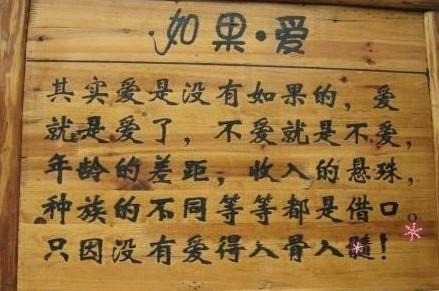 如果·爱
其实爱是没有如果的，爱
就是爱了，不爱就是不爱，
年龄的差距，收入的悬珠，
种族的不同等等都是借口。
只因没有爱得入骨入髓！